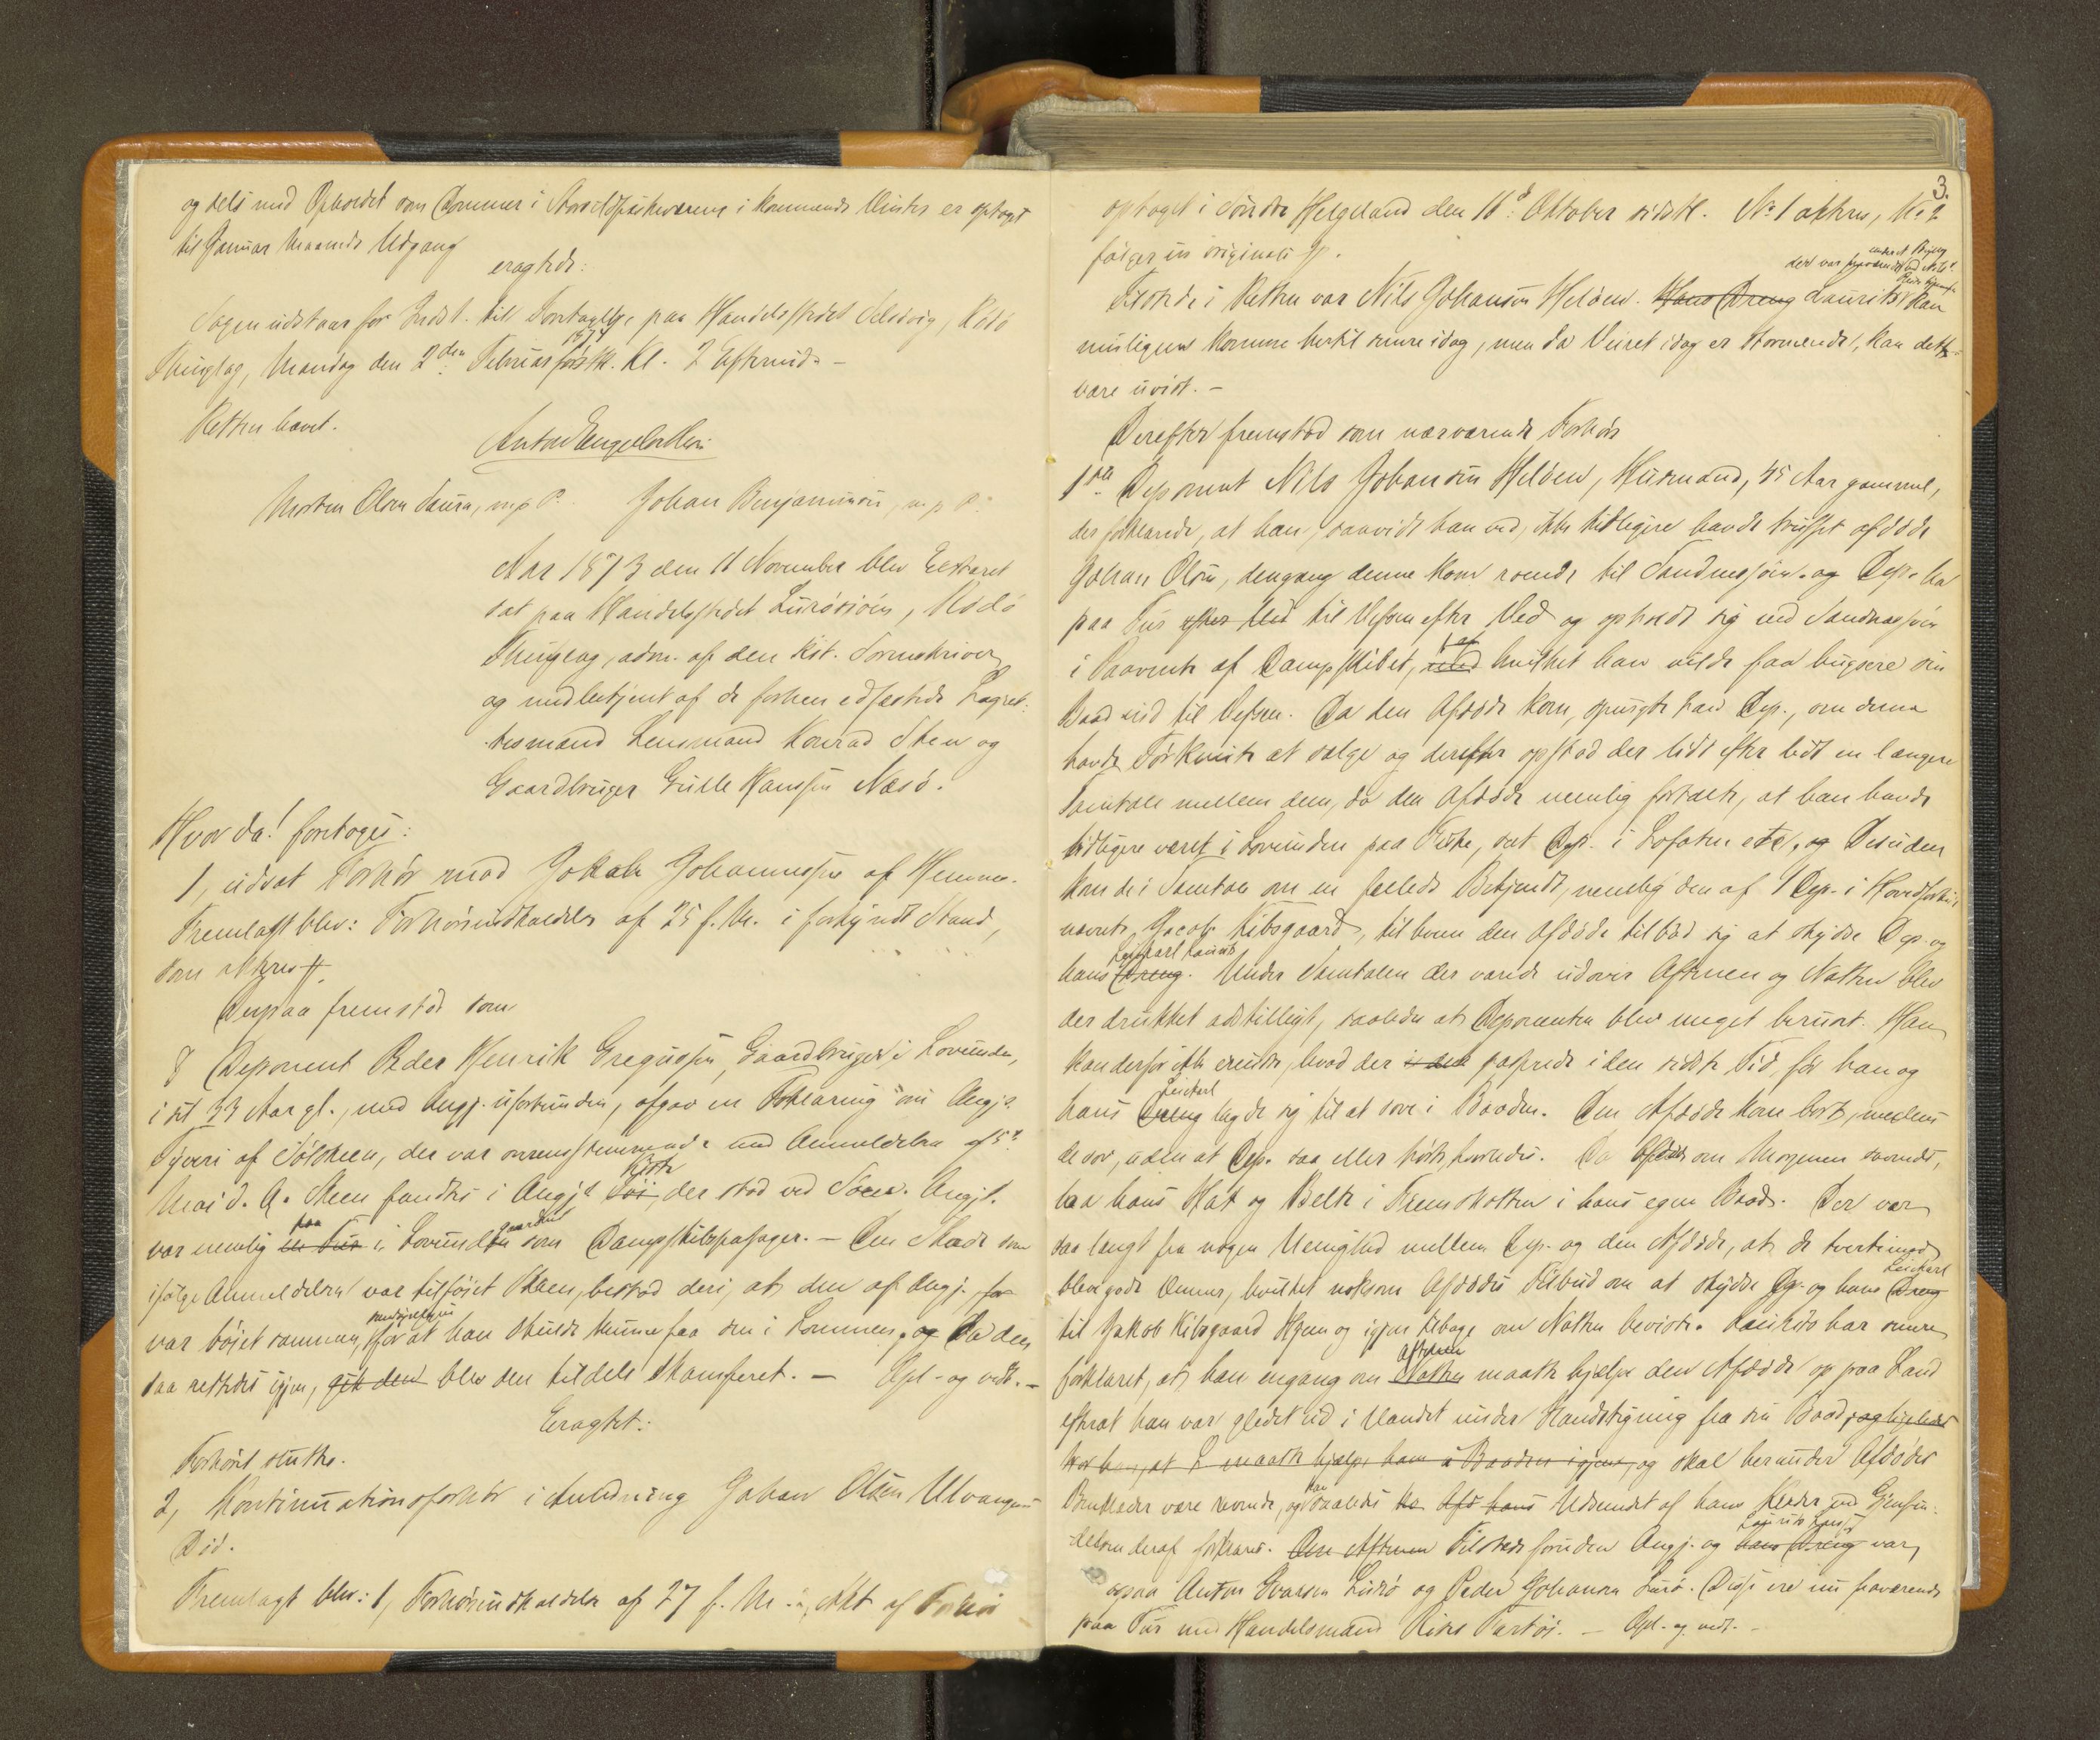 og dels med Opholdet som Dommer i Storsildfiskeværene i kommende Vinter er optaget
til Januar Maaneds Udgang
eragtede:
Sagen udstaar for Indst. til Foretagelse paa Handelsstedet Selsövig, Rödö
Thinglag, Mandag den 2den Februar 1874 förstk. Kl. 2 Eftermid. -
Retten hævet.
Anton Engelbrethsen
Morten Olsen Saura, m.p.P. Johan Benjaminsen, m.p.P.
Aar 1873 den 11 November blev Extraret
sat paa Handelsstedet Luröÿsjöen, Rödö
Thinglag, adm. af den kst. Sorenskriver
og medbetjent af de forhen edfæstede Lagret-
tesmænd Lensmand Konrad Steen og
Gaardbruger Gulle Hanssen Næsö.
Hvor da! foretoges:
1, udsat Forhör mod Jakob Johannessen af Hemnes.
Fremlagt blev: Forhörsindkaldelse af 25 f. M. i forkyndt Stand,
som akteres #.
Derpaa fremstod som
8 Deponent Peder Henrik Gregussen, Gaardbruger i Lovunden,
i sit 33 Aar gl., med Angj. uforbunden, afgav en Forklaring om Angj.s
Tyveri af Sölskeen, der var overensstemmende med Anmeldelsen af 5te
Mai d. A. Skeen fandtes i Angj.s Töi Kiste, der stod ved Söen. Angj.
var nemlig en Tur paa i Lovunden gaardens som Dampskibspassager. - Den Skade som
ifölge Anmeldelsen var tilföiet Skeen, bestod deri, at den af Angj. for
var böiet sammen, for at han skulde kunne faa den i Lommen, og Da den
saa rettedes igjen, gik den blev den tildels skamferet. - Opl. og vedt. -
Eragtet:
Forhöret sluttes.
2, Kontinuationsforhör i Anledning Johan Olsen Ulvangens
Död.
Fremlagt blev: 1, Forhörsindkaldelse af 27 f. M. 2, Akt af Forhör
3.
optaget i söndre Helgeland den 16de Oktober sidstl. No 1 akteres, No 2
fölger in originali #.
Tilstede i Retten var Nils Johansen Helöen. Hans Dreng Laurits kan
muligens komme hertil senere idag, men da Veiret idag er stormende, kan dette
være uvist. -
Derefter fremstod som nærværende Forhörs
1ste Deponent Nils Johansen Helöen, Husmand, 45 Aar gammel,
der forklarede, at han, saavidt han ved, ikke tidligere havde truffet afdöde
Johan Olsen, dengang denne kom roende til Sandnessjöen, og Dep. va
paa Tur efter Ved til Vefsen efter Ved og opholdt sig ved Sandnessjöen
i Paavente af Dampskibet, med af hvilket han vilde faa bugsere sin
Baad ind til Vefsen. Da den Afdöde kom, spurgte han Dep., om denne
havde Törkveite at sælge og derefter opstod der lidt efter lidt en længere
Samtale mellem dem, da den Afdöde nemlig fortalte, at han havde
tidligere været i Lovunden paa Fiske, seet Dep. i Lofoten etc, og Desuden
kom de i Samtale om en fælleds Bekjendt, nemlig den af 1 Dep. i Hovedforhöret
nævnte Jacob Kibsgaard, til hvem den Afdöde tilböd sig at skydse Dep. og
hans Dreng Leiekarl Laurits. Under Samtalen der varede udover Aftenen og Natten blev
der drukket adskilligt, saaledes at Deponenten blev meget beruset. Han
kan derfor ikke erindre, hvad der i det passerede i den sidste Tid, för han og
hans Dreng Leiekarl lagde sig til at sove i Baaden. Den Afdöde kom bort, medens
de sov, uden at Dep. saa eller hörte, hvorledes. Da Afdöde om Morgenen savnedes,
laa hans Hat og Belte i Fremskotten i hans egen Baad. Der var
saa langt fra nogen Uenighed mellem Dep. og den Afdöde, at de tvertimod
bleve gode Venner, hvilket noksom Afdödes Tilbud om at skydse Dep. og hans Dreng Leiekarl
til Jakob Kibsgaard Hjem og igjen tilbage om Natten beviste. Laurits har senere
forklaret, at han engang om Natten Aftenen maatte hjælpe den Afdöde op paa Land
efterat han var gledet ud i Vandet under Ilandstigning fra sin Baad, og ligeledes
för han, at L. maatte hjælpe ham i Baaden igjen, og skal herunder Afdödes
Benklæder være revnede, og kan saaledes Udseendet af hans Klæder ved Gjenfin-
delsen deraf forklares. Den Aftenen Tilstede foruden Angj. og hans Dreng Laurits Larss. var
ogsaa Anton Evarsen Lurö og Peder Johansen Lurö. Disse ere nu fraværende
paa Tur med Handelsmand Riises Fartöi. - Opl. og vedt. -